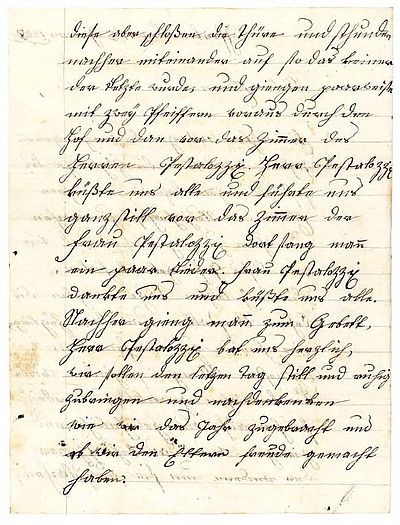 diese aber schloßen die Thüre und stunden
nachher miteinander auf so das keiner
der letzte wurde, und giengen paarweise
mit zwey Pfeiffern voraus durch den
Hof und dan vor das Zimmer des
Herren Pestalozzi Herr Pestalozzi
küßte uns alle und führte uns
ganz still vor das Zimmer der
Frau Pestalozzi dort sang mañ
ein paar Lieder. Frau Pestalozzi
dankte uns und küßte uns alle.
Nachher gieng mañ zum Gebett,
Herr Pestalozzi bat uns herzlich,
wir sollen den letzen Tag still und ruhig
zubringen und nachdenken
wie wir das Jahr zugebracht und
ob wir den Eltern freude gemacht
haben.